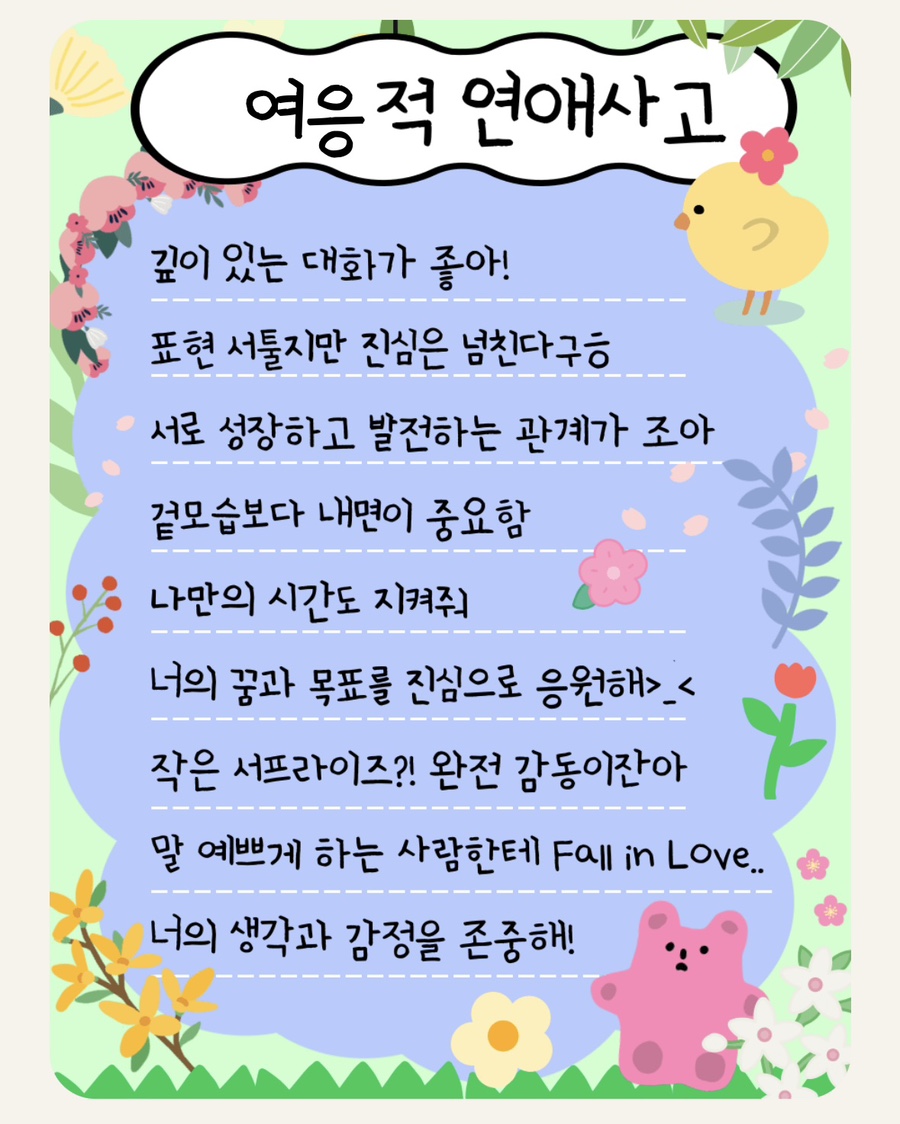 여응적 연애사고
깊이 있는 대화가 좋아!
표현 서툴지만 진심은 넘친다구흐
서로 성장하고 발전하는 관계가 조아
겉모습보다 내면이 중요함
나만의 시간도 지켜줘
너의 꿈과 목표를 진심으로 응원해>_<
작은 서프라이즈?! 완전 감동이잔아
말 예쁘게 하는 사람한테 Fall in Love..
너의 생각과 감정을 존중해!